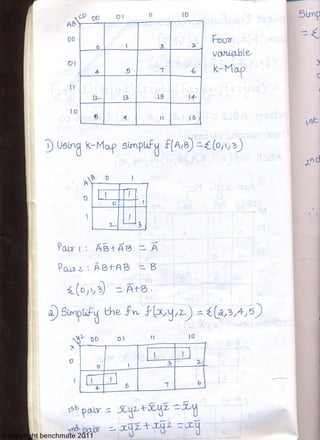 CD 00 01 11 10
AB
00 0 1 3 2
Four variable K-Map
01 4 5 7 6
11 12 13 15 14
10 8 9 11 10
1) Using K-Map simplify f(A,B) = Σ(0,1,3)
B 0 1
A
0 1 1
0 1
1 1
2 3
Pair 1 : A̅B̅ + A̅B = A̅
Pair 2 : A̅B + AB = B
Σ(0,1,3) = A̅ + B.
2) Simplify the fn f(x,y,z) = Σ(2,3,4,5)
yz 00 01 11 10
x
0 1 1
0 1 3 2
1 1 1
4 5 7 6
1st pair = x̅yz + x̅yz̅ = x̅y
2nd pair = xy̅z̅ + xy̅z = xy̅
benchmate 2011
Simp
= Σ
1st
2nd